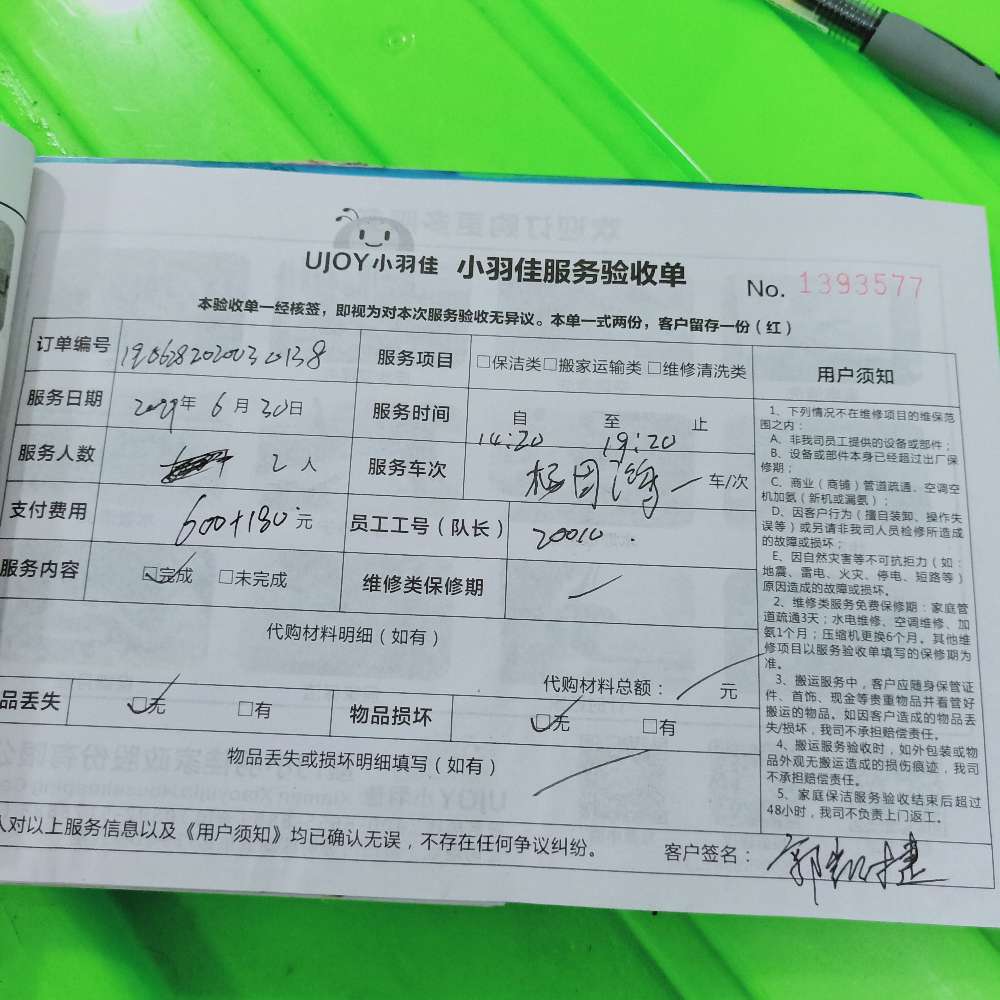 UJOY小羽佳 小羽佳服务验收单
No. 1393577
本验收单一经核签，即视为对本次服务验收无异议。本单一式两份，客户留存一份（红）
订单编号 服务项目 □保洁类□搬家运输类 □维修清洗类
服务日期 年 6 月 30 日 服务时间 自 14:20 至 19:20 止
服务人数 2 人 服务车次 车/次
支付费用 600+180 元 员工工号（队长） 20010
服务内容 ☑完成 □未完成 维修类保修期
代购材料明细（如有）
代购材料总额： 元
品丢失 ☑无 □有 物品损坏 ☑无 □有
物品丢失或损坏明细填写（如有）
人对以上服务信息以及《用户须知》均已确认无误，不存在任何争议纠纷。
客户签名：
用户须知
1、下列情况不在维修项目的维保范
围之内：
A、非我司员工提供的设备或部件；
B、设备或部件本身已经超过出厂保
修期；
C、商业（商铺）管道疏通、空调空
机加氨（新机或漏氨）；
D、因客户行为（擅自装卸、操作失
误等）或另请非我司人员检修所造成
的故障或损坏；
E、因自然灾害等不可抗拒力（如：
地震、雷电、火灾、停电、短路等）
原因造成的故障或损坏。
2、维修类服务免费保修期：家庭管
道疏通3天；水电维修、空调维修、加
氨1个月；压缩机更换6个月。其他维
修项目以服务验收单填写的保修期为
准。
3、搬运服务中，客户应随身保管证
件、首饰、现金等贵重物品并看管好
搬运的物品。如因客户造成的物品丢
失/损坏，我司不承担赔偿责任。
4、搬运服务验收时，如外包装或物
品外观无搬运造成的损伤痕迹，我司
不承担赔偿责任。
5、家庭保洁服务验收结束后超过
48小时，我司不负责上门返工。